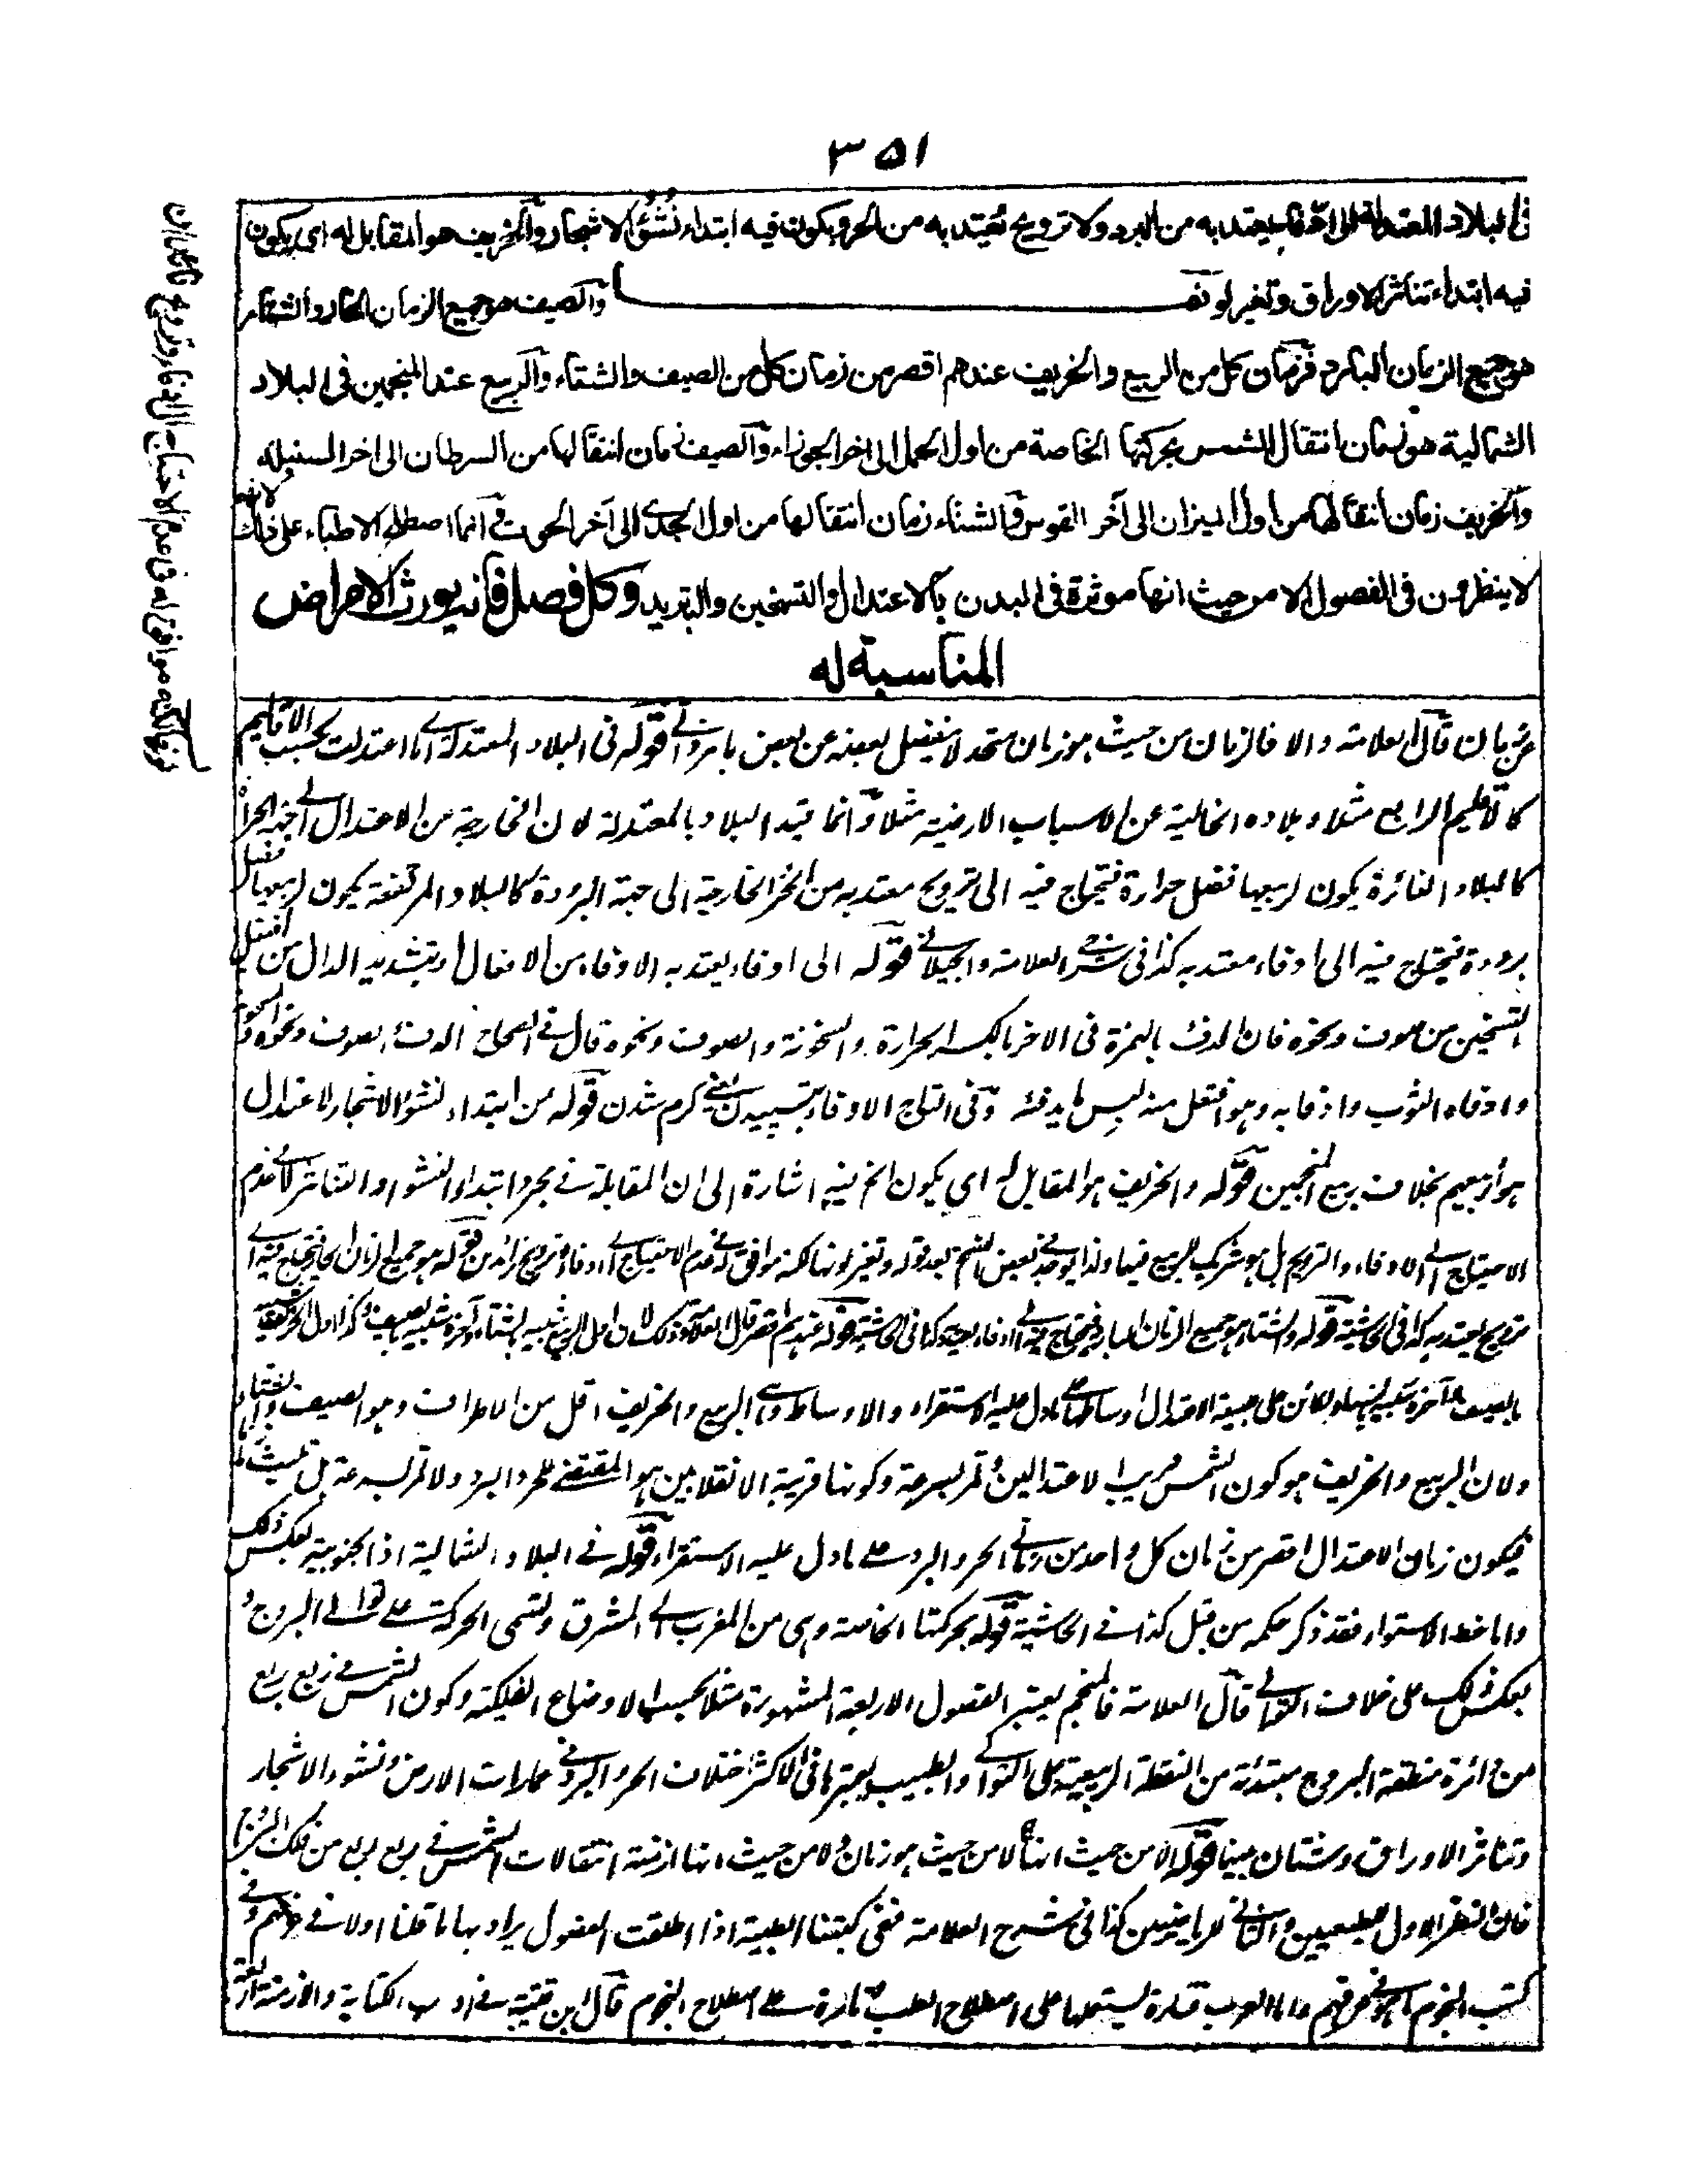 ٣٥١
فى البلاد المعتدلة الى ادفاء يعتد به من البرد ولا ترويح يعتد به من الحر ويكون فيه ابتداء نشؤ الاشجار والخريف هو المقابل له اى يكون
فيه ابتداء تناثر الاوراق وتغير لونها والصيف هو جميع الزمان الحار والشتاء
هو جميع الزمان البارد فزمان كل من الربيع والخريف عندهم اقصر من زمان كل من الصيف والشتاء والربيع عند المنجمين فى البلاد
الشمالية هو زمان انتقال الشمس بحركتها الخاصة من اول الحمل الى اخر الجوزاء والصيف زمان انتقالها من السرطان الى اخر السنبلة
والخريف زمان انتقالها من اول الميزان الى آخر القوس والشتاء زمان انتقالها من اول الجدى الى آخر الحوت وانما اصطلح الاطباء على ذلك لانهم
لا ينظرون فى الفصول الا من حيث انها موثرة فى البدن بالاعتدال والتسخين والتبريد وكل فصل فانه يورث الامراض
المناسبة له
قال العلامة والا فالزمان من حيث هو زمان متحد لا ينفصل بعضه عن بعض قوله فى البلاد المعتدلة اى ما اعتدلت بحسب الاقليم
كالاقليم الرابع مثلا وبلاده الخالية عن الاسباب الارضية مثلا وانما قيد البلاد بالمعتدلة لان الخارجة من الاعتدال الى جهة الحرارة
كالبلاد الغائرة يكون لربيعها فضل حرارة فيحتاج فيه الى ترويح معتد به من الحر والخارجة الى جهة البرودة كالبلاد المرتفعة يكون لربيعها فضل
برودة فيحتاج فيه الى ادفاء معتد به كذا فى شرح العلامة والجيلانى قوله الى ادفاء يعتد به الادفاء من الافعال او بتشديد الدال من افتعل
التسخين من صوف ونحوه فان الدفء بالهمزة فى الاخر بالكسر الحرارة والسخونة والصوف ونحوه قال فى الصحاح الدفء الصوف ونحوه
وادفاه الثوب وادفا به وهو افتعل منه لبس ما يدفئه وفى التاج الادفاء گرم شدن قوله من ابتداء نشو الاشجار لاعتدال
هواء ربيعهم بخلاف ربيع المنجمين قوله والخريف هو المقابل له اى يكون الخ فيه اشارة الى ان المقابلة فى مجرد ابتداء النشو والتناثر لا فى عدم
الاحتياج الى الادفاء والترويح بل هو شريك الربيع فيها ولذا يوجد فى بعض النسخ بعد قوله وتغير لونها لكنه موافق له فى عدم الاحتياج الى ادفاء وترويح زائدين قوله هو جميع الزمان الحار فيحتاج فيه الى
ترويح يعتد به كذا فى الحاشية قوله والشتاء هو جميع الزمان البارد فيحتاج فيه الى ادفاء يعتد به كذا فى الحاشية قوله عندهم اقصر قال العلامة وذلك لان اول الربيع شبيه بالشتاء وآخره شبيه بالصيف وكذا اول الخريف شبيه
بالصيف وآخره شبيه بالشتاء على ما دل عليه الاستقراء والاوساط وهى الربيع والخريف اقل من الاطراف وهو الصيف والشتاء
ولان الربيع والخريف هو كون الشمس قريب الاعتدالين وتمر بسرعة وكونها قريبة الانقلابين هو المقتضى للحر والبرد ولا تمر بسرعة بل تلبث
فيكون زمان الاعتدال اقصر من زمان كل واحد من زمانى الحر والبرد على ما دل عليه الاستقراء قوله فى البلاد الشمالية اذ الجنوبية بعكس ذلك
واما خط الاستواء فقد ذكر حكمه من قبل كذا فى الحاشية قوله بحركتها الخاصة وهى من المغرب الى المشرق وتسمى الحركة على توالى البروج و
بعكس ذلك على خلاف التوالى قال العلامة فالمنجم يعتبر الفصول الاربعة المشهورة مثلا بحسب الاوضاع الفلكية وكون الشمس فى ربع ربع
من دائرة منطقة البروج مبتدئة من النقطة الربيعية على التوالى والطبيب يعتبرها فى الاكثر اختلاف الحر والبرد فى عمارات الارض ونشوء الاشجار
وتناثر الاوراق وشتان بينهما قوله الا من حيث انها لا من حيث هو زمان ولا من حيث انها ازمنة انتقالات الشمس فى ربع ربع من فلك البروج
فان النظر الاول للطبيعيين والثانى للرياضيين كذا فى شرح العلامة ففى كتبنا الطبية اذا اطلقت الفصول يراد بها ما قلنا اولا فى عرفهم وفى
كتب النجوم ما هو فى عرفهم واما العرب فتارة يستعملها على اصطلاح الطب وتارة على اصطلاح النجوم قال ابن قتيبة فى ادب الكتابة والازمنة اربعة
لكنه موافق له فى عدم الاحتياج الى ادفاء وترويح زائدان